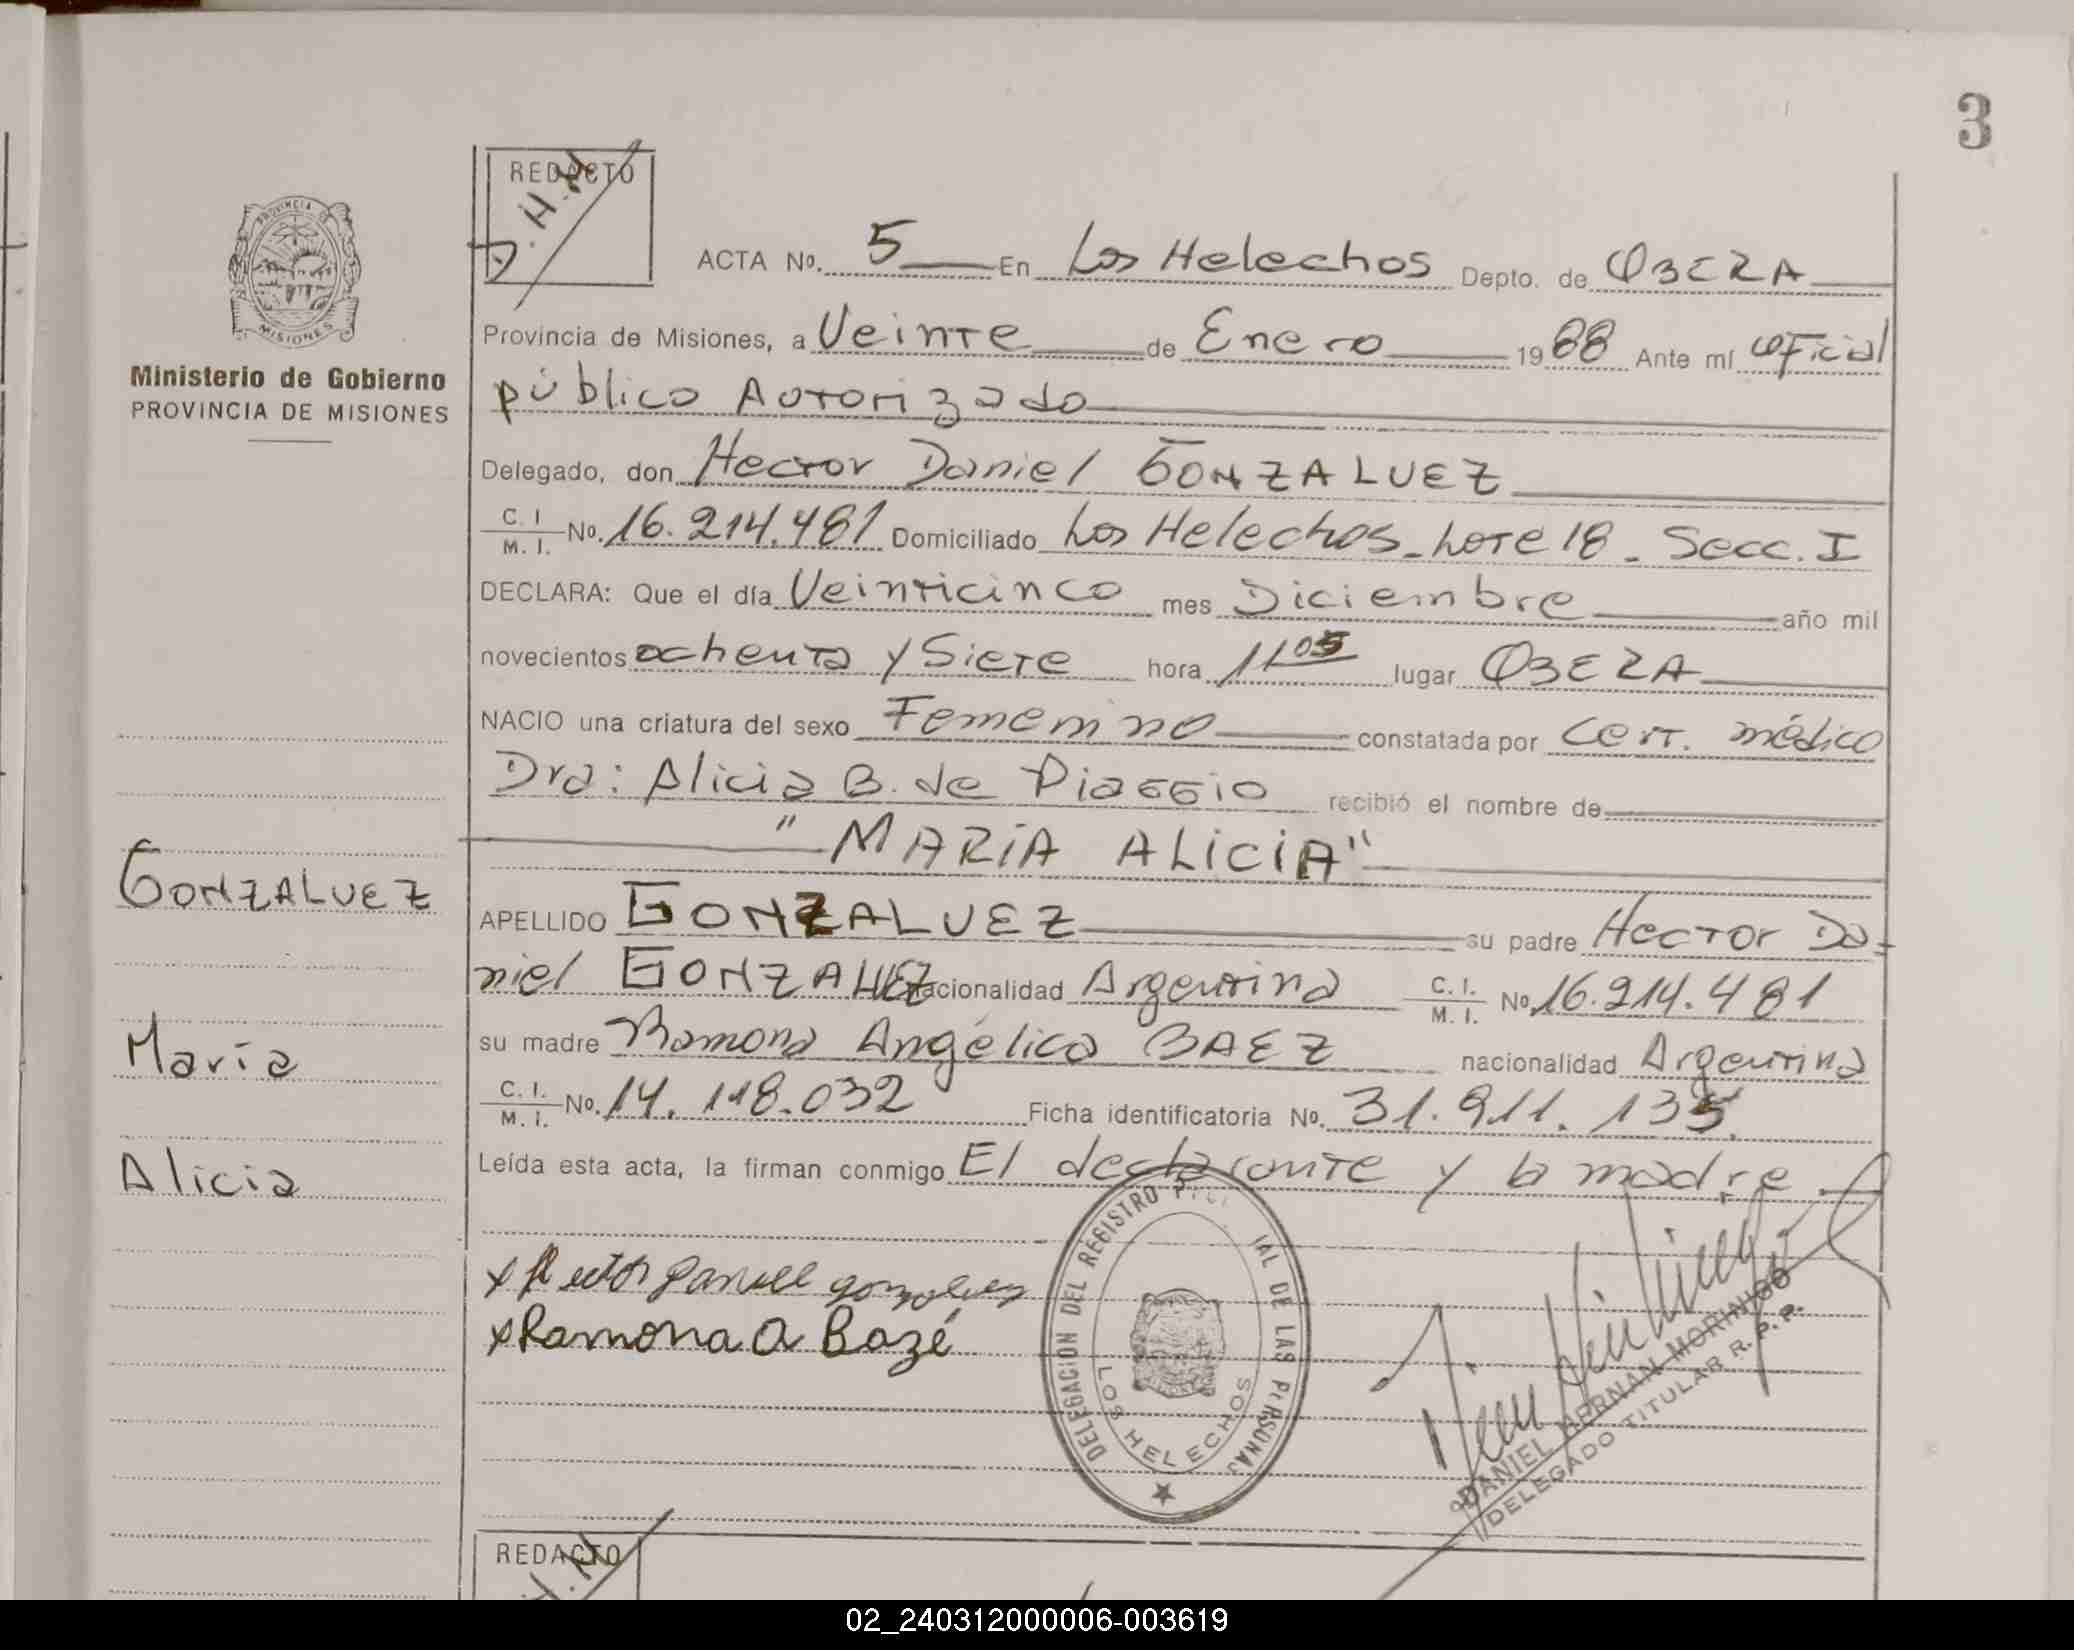 3
REDACTO
D.H.M
PROVINCIA DE
MISIONES
Ministerio de Gobierno
PROVINCIA DE MISIONES
ACTA Nº. 5 En Los Helechos Depto. de OBERA
Provincia de Misiones, a Veinte de Enero 1988 Ante mí oficial
público Autorizado
Delegado, don Hector Daniel GONZALUEZ
C. I M. I. Nº. 16.214.481 Domiciliado Los Helechos - Lote 18 - Secc. I
DECLARA: Que el día Veinticinco mes Diciembre año mil
novecientos ochenta y Siete hora 11 05 lugar OBERA
NACIO una criatura del sexo Femenino constatada por Cert. médico
Dra: Alicia B. de Piaggio recibió el nombre de
"MARIA ALICIA"
GONZALUEZ
María
Alicia
APELLIDO GONZALUEZ su padre Hector Da-
niel GONZALUEZ nacionalidad Argentina C. I. M. I. Nº 16.214.481
su madre Ramona Angélica BAEZ nacionalidad Argentina
C. I. M. I. Nº. 14.118.032 Ficha identificatoria Nº. 31.911.135
Leída esta acta, la firman conmigo El declarante y la madre
x Hector Daniel gonzaluez
x Ramona A Bazé
DELEGACION DEL REGISTRO DE LAS PERSONAS
LOS HELECHOS
DANIEL HERNAN MORINIGO
DELEGADO TITULAR R. P. P.
REDACTO
H.M
02_240312000006-003619